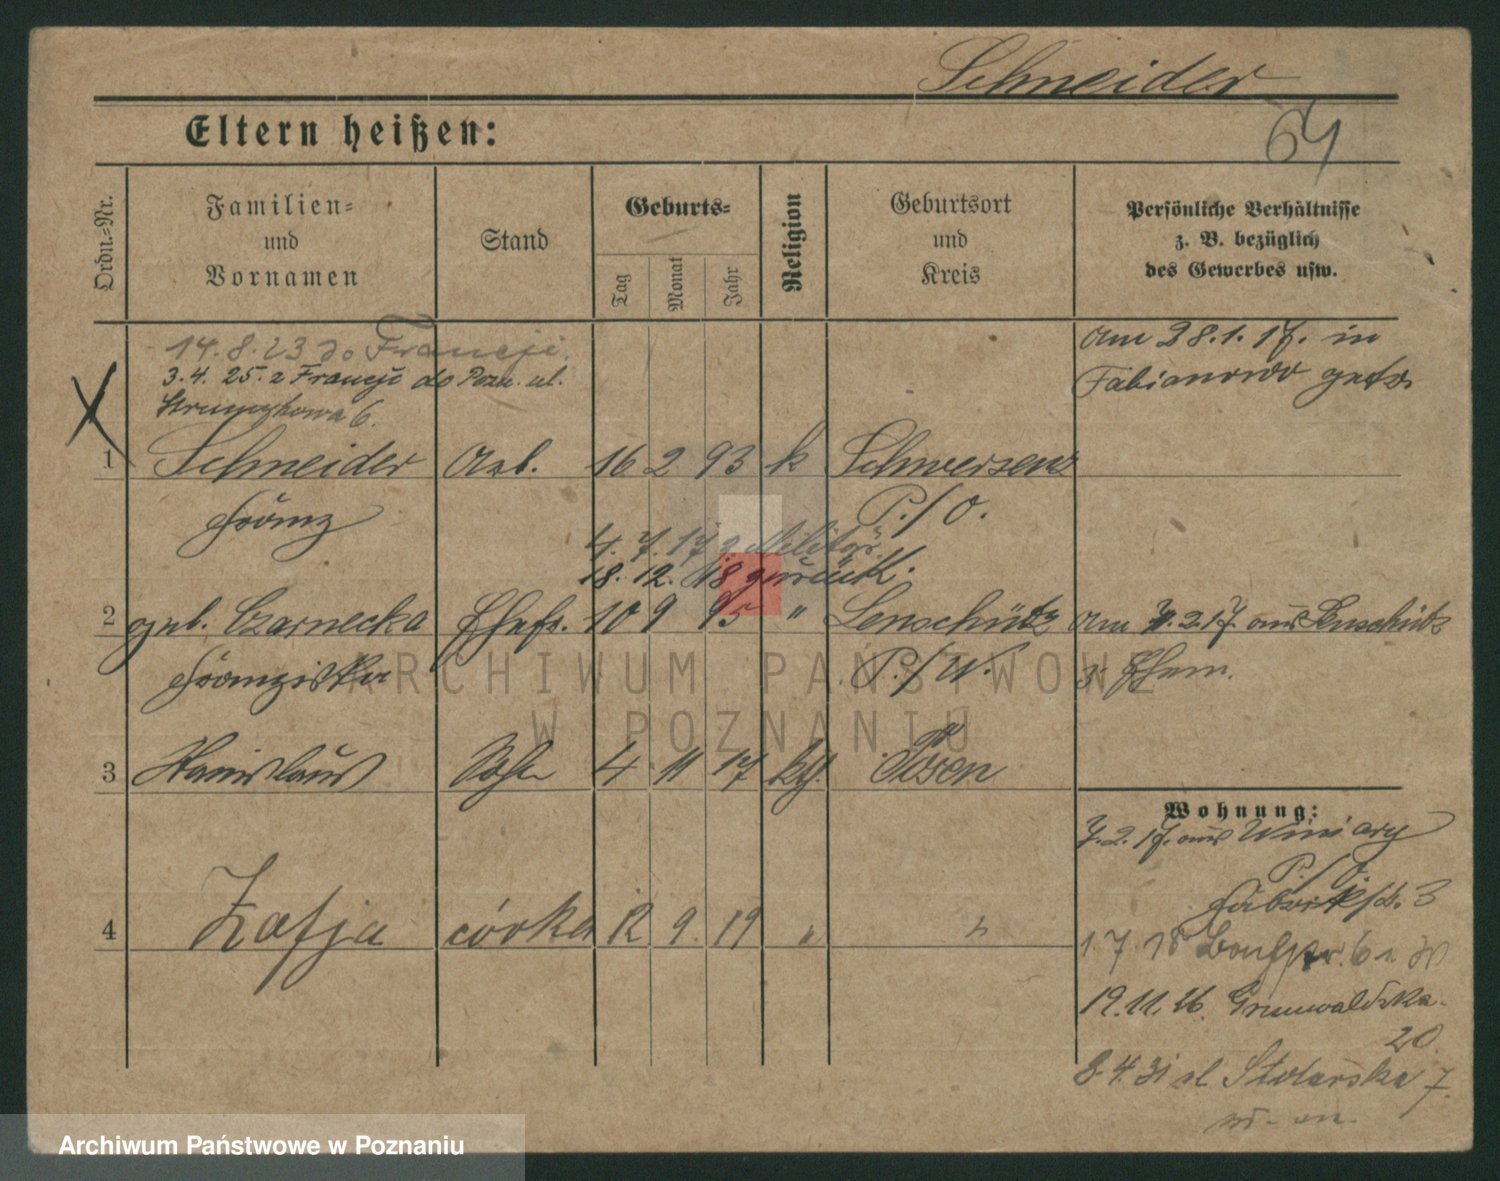 Schneider
Eltern heißen:
64
Ordn.=Nr.
Familien=
und
Vornamen
Stand
Geburts=
Tag
Monat
Jahr
Religion
Geburtsort
und
Kreis
Persönliche Verhältnisse
z. B. bezüglich
des Gewerbes usw.
14.8.23 do Francji.
3.4.25. z Francji do Pozn. ul.
6.
Am 28.1.17. in
Fabianowo getr.
1 Schneider Arb. 16 2 93 k Schwersenz
Franz P./O.
4.7.17 z. Militär.
18.12.18 zurück.
2 geb. Czarnecka Ehefr. 10 9 95 " Lenschütz Am 7.2.17. aus Lenschütz
Franziska P./W. z. Ehem.
3 Stanislaus Sohn 4 11 17 kth. Posen
Wohnung:
7.2.17. aus Winiary
P./J.
Fabrikstr. 3
4 Zofja córka 12 9 19 " "
1.7.18 6
19.11.26. Grunwaldzka
20.
8.4.31 ul. Stolarska 7.
ARCHIWUM PAŃSTWOWE
W POZNANIU
Archiwum Państwowe w Poznaniu